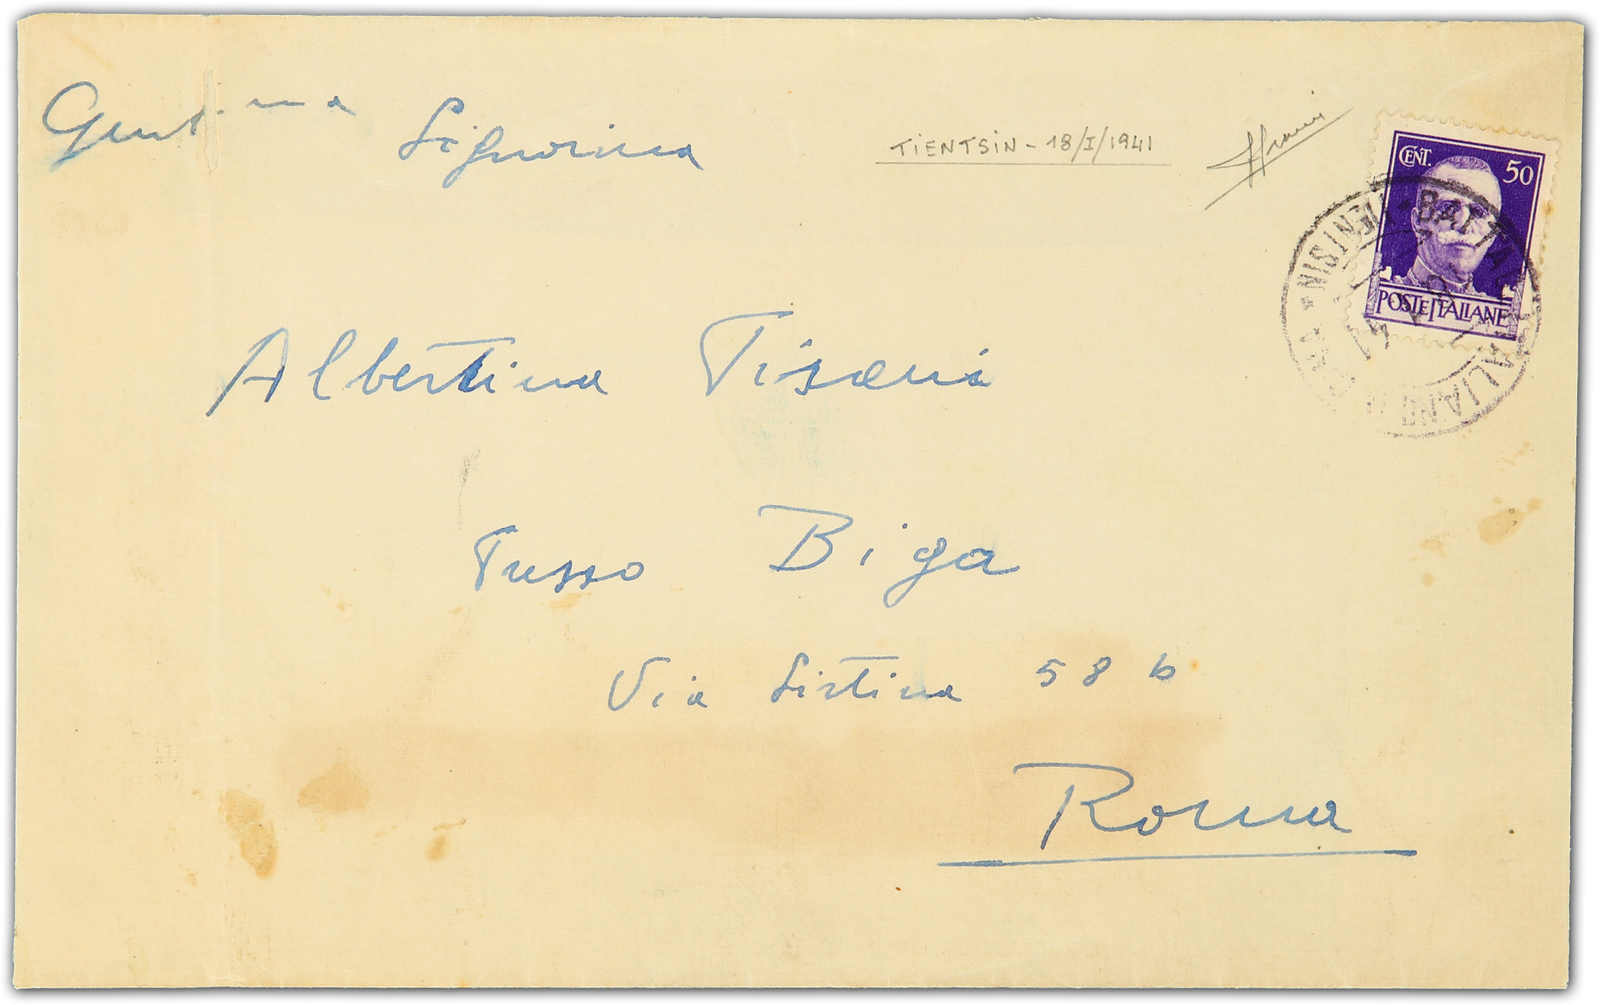 Gent.ma Signorina
TIENTSIN - 18/I/1941
CENT. 50
POSTE ITALIANE
BATTA ITALIANO CINA * TIENTSIN *
41
Albertina Tisani
Presso Biga
Via Sistina 58 b
Roma